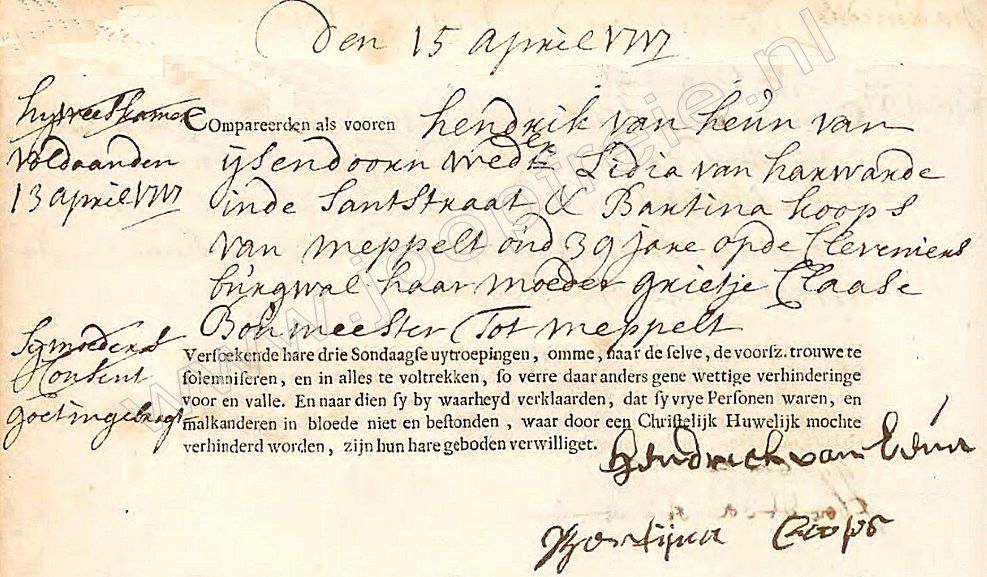 Den 15 april 1717
hy weeskamer
voldaan den
13 april 1717
COmpareerden als vooren hendrik van heun van
ijsendoorn weder Lidia van harwarde
inde Santstraat & Bartina koops
van meppelt oud 39 jare op de Cleveniers
burgwal haar moeder grietje Claase
Boumeester tot meppelt
sy moeders
Consent
goet ingebragt
Versoekende hare drie Sondaagse uytroepingen, omme, naar de selve, de voorsz. trouwe te
solemniseren, en in alles te voltrekken, so verre daar anders gene wettige verhinderinge
voor en valle. En naar dien sy by waarheyd verklaarden, dat sy vrye Personen waren, en
malkanderen in bloede niet en bestonden, waar door een Christelijk Huwelijk mochte
verhinderd worden, zijn hun hare geboden verwilliget.
Hendrick van
Bartijna Coops
www.joopfreie.nl